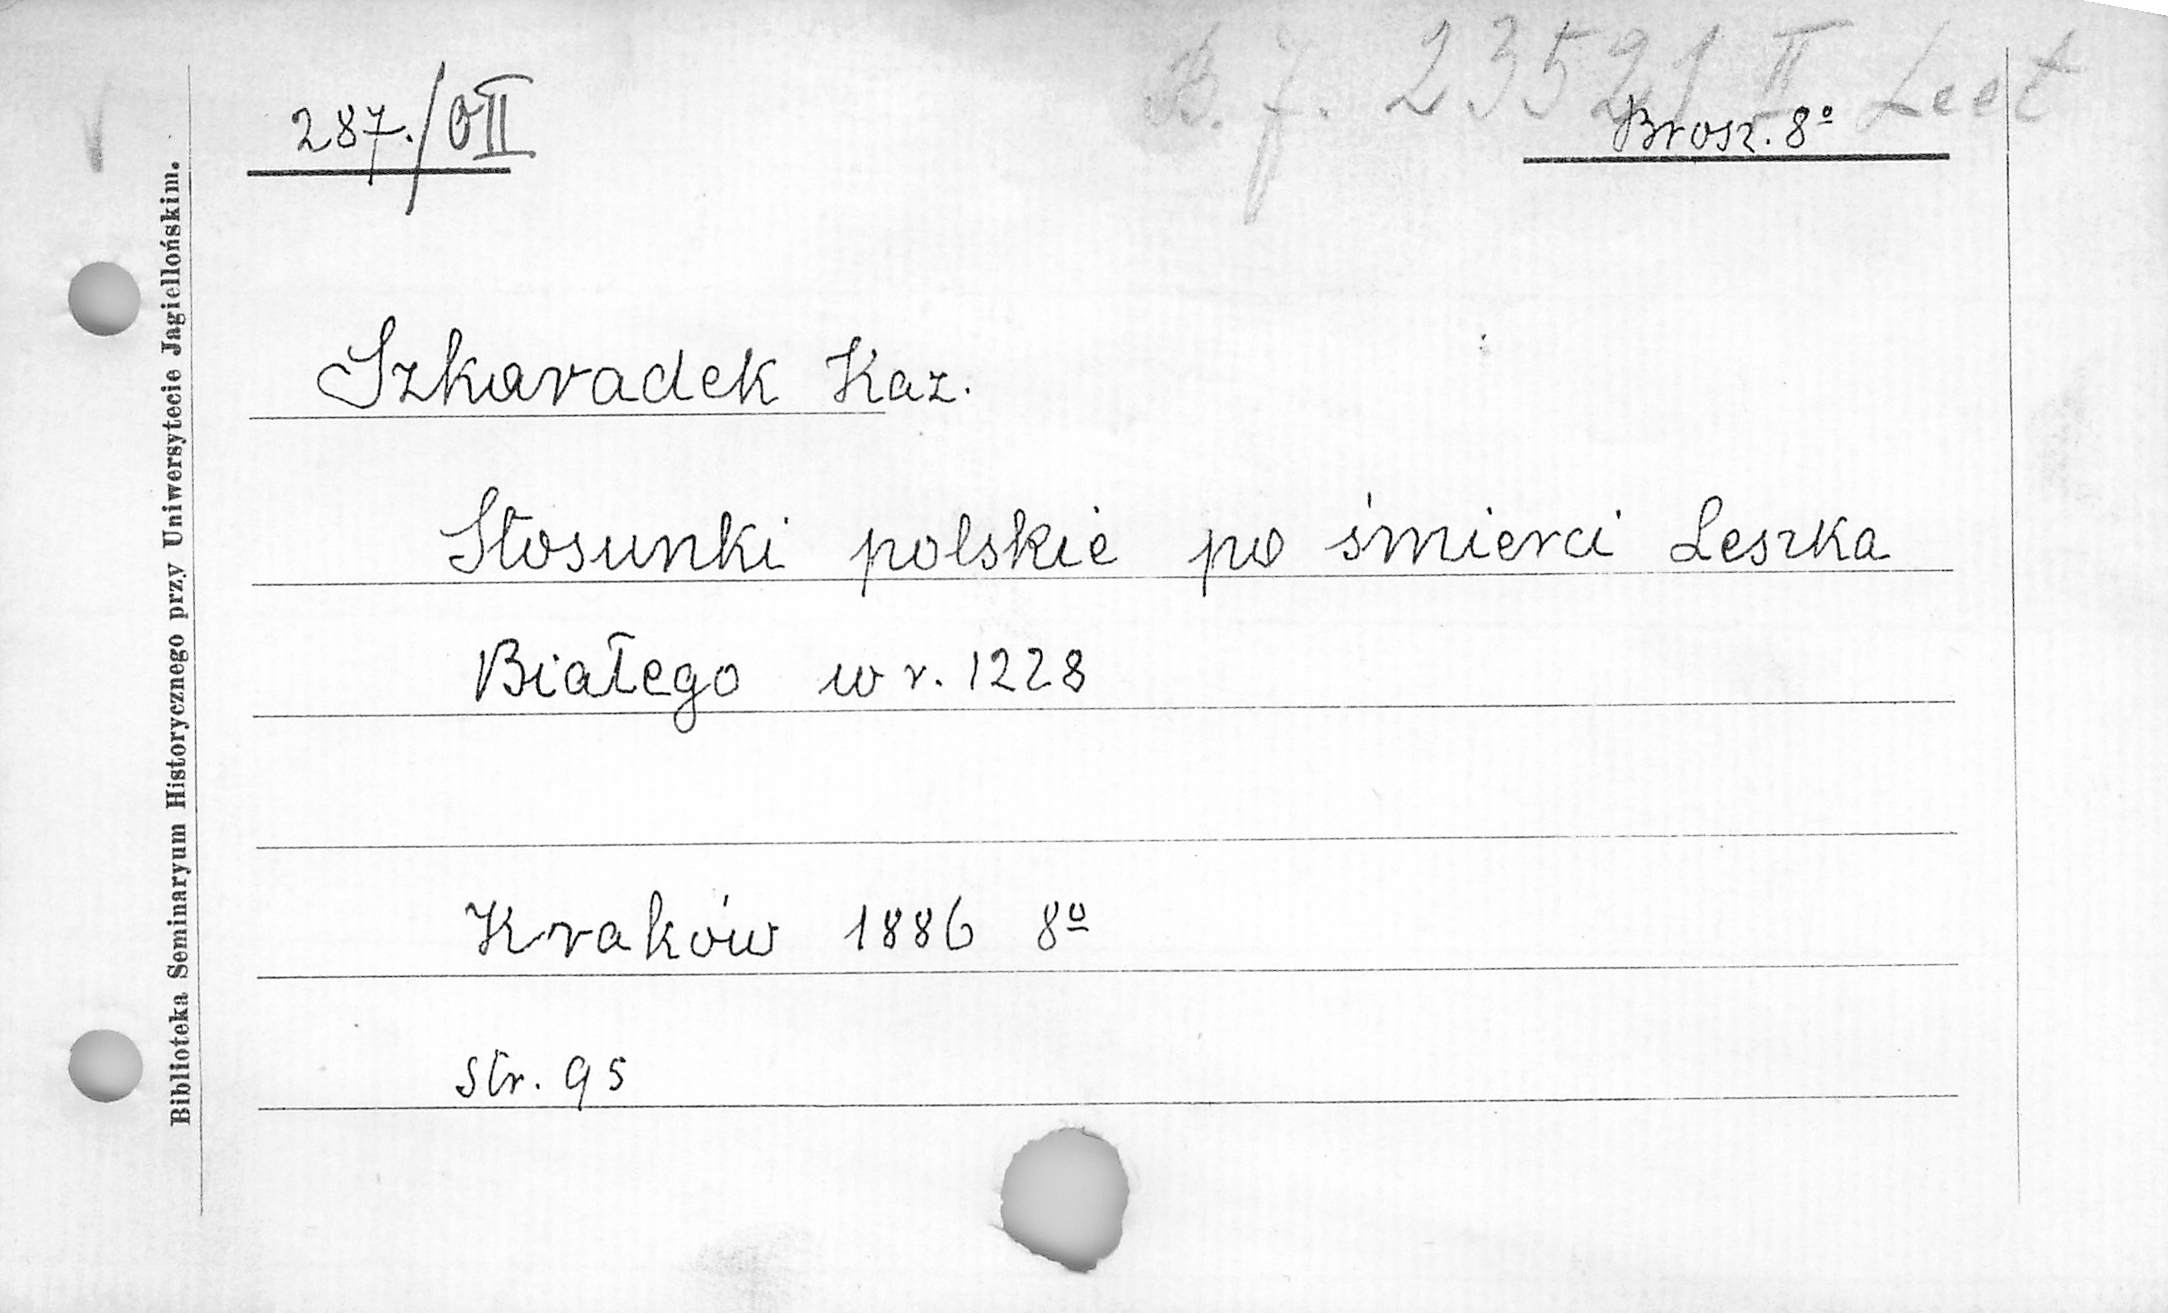 B. J. 23521 II Lect
287./OII
Brosz. 8º
Szkaradek Kaz.
Stosunki polskie po śmierci Leszka
Białego w r. 1228
Kraków 1886 8º
str. 95
Biblioteka Seminaryum Historycznego przy Uniwersytecie Jagiellońskim.